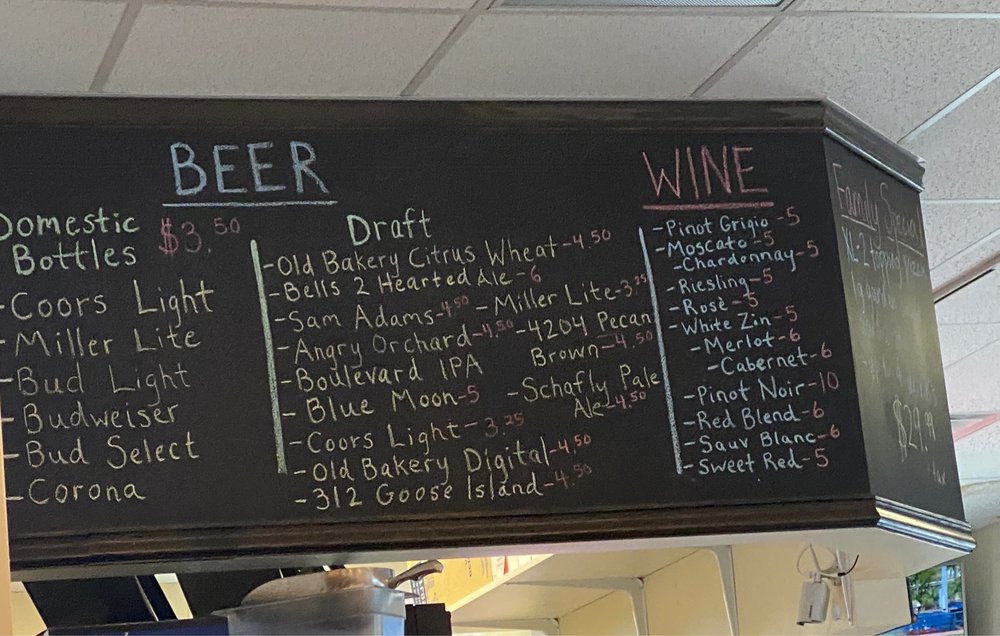 BEER
Domestic
Bottles $3.50
-Coors Light
-Miller Lite
-Bud Light
-Budweiser
-Bud Select
-Corona
Draft
-Old Bakery Citrus Wheat-4.50
-Bells 2 Hearted Ale-6
-Sam Adams-4.50
-Angry Orchard-4.50
-Boulevard IPA
-Blue Moon-5
-Coors Light-3.25
-Old Bakery Digital-4.50
-312 Goose Island-4.50
-Miller Lite-3.25
-4204 Pecan
Brown-4.50
-Schafly Pale
Ale-4.50
WINE
-Pinot Grigio-5
-Moscato-5
-Chardonnay-5
-Riesling-5
-Rosè-5
-White Zin-5
-Merlot-6
-Cabernet-6
-Pinot Noir-10
-Red Blend-6
-Sauv Blanc-6
-Sweet Red-5
Family Special
XL-2 topping
$29.99
+tax